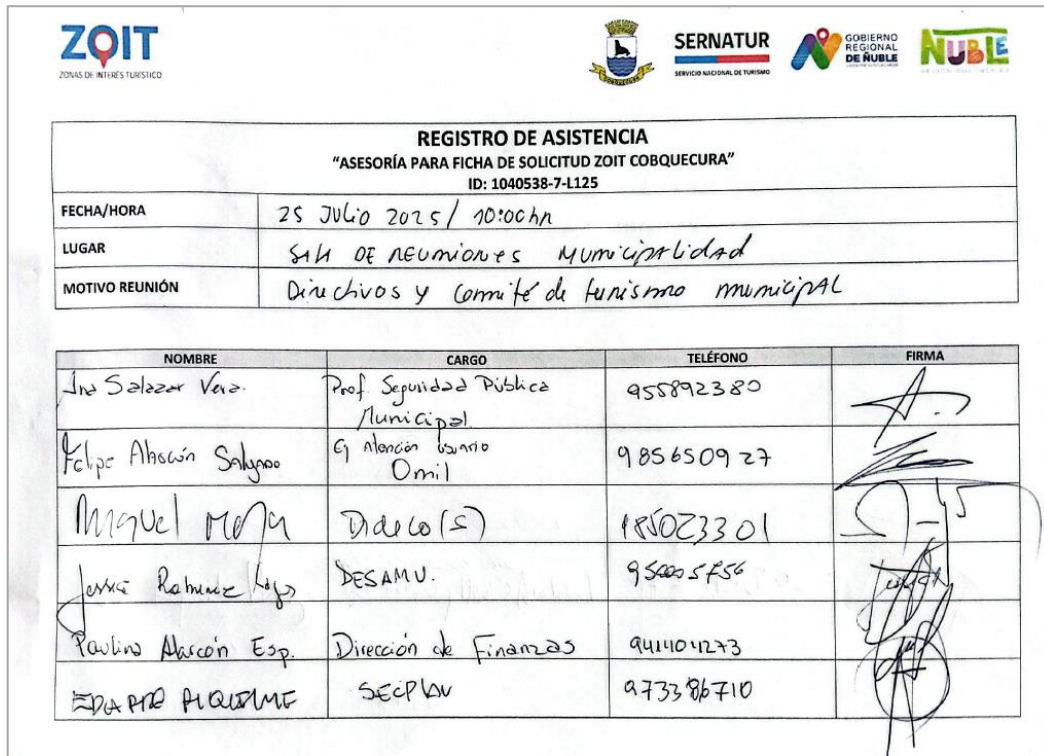 ZOIT
ZONAS DE INTERÉS TURÍSTICO
COBQUECURA
SERNATUR
SERVICIO NACIONAL DE TURISMO
GOBIERNO
REGIONAL
DE ÑUBLE
ÑUBLE
REGISTRO DE ASISTENCIA
“ASESORÍA PARA FICHA DE SOLICITUD ZOIT COBQUECURA”
ID: 1040538-7-L125
FECHA/HORA 25 Julio 2025/ 10:00hr
LUGAR SALA DE REUNIONES MUNICIPALIDAD
MOTIVO REUNIÓN Directivos y Comité de turismo municipAL
NOMBRE CARGO TELÉFONO FIRMA
Ana Salazar Vera. Prof. Seguridad Pública 955892380
Municipal
Felipe Alarcón Salgado Atención usuario 985650927
Omil
Miguel Dideco(S)
Jessica DESAMU.
Paulina Alarcón Esp. Dirección de Finanzas
SECPLAN 973386710